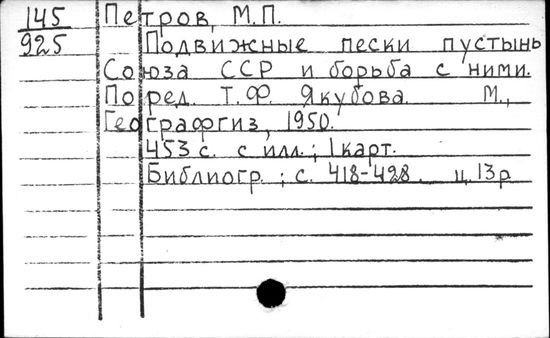 145
925
Петров, М.П.
Подвижные пески пустынь
Союза ССР и борьба с ними.
По ред. Т.Ф. Якубова. М.,
Географгиз, 1950.
453 с. с илл.; 1 карт.
Библиогр.; с. 418-428. ц. 13р